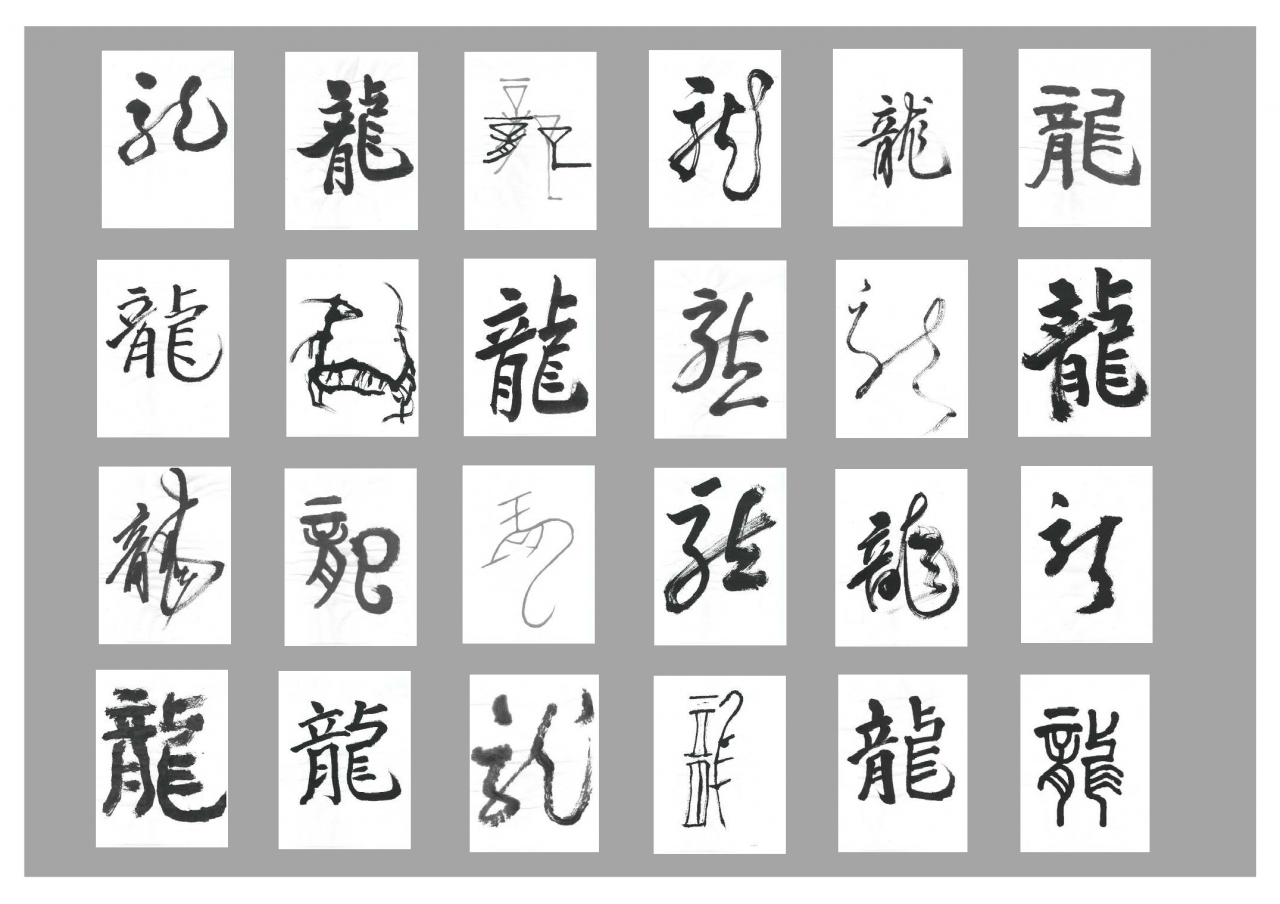 龍 龍 龍 龍 龍 龍
龍 龍 龍 龍 龍
龍 龍 龍 龍 龍
龍 龍 龍 龍 龍 龍